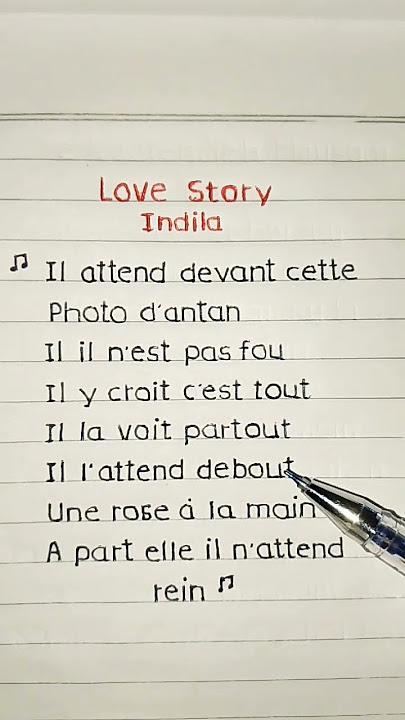 Love Story
Indila
♫ Il attend devant cette
Photo d'antan
Il il n'est pas fou
Il y croit c'est tout
Il la voit partout
Il l'attend debout
Une rose à la main
A part elle il n'attend
rein ♫